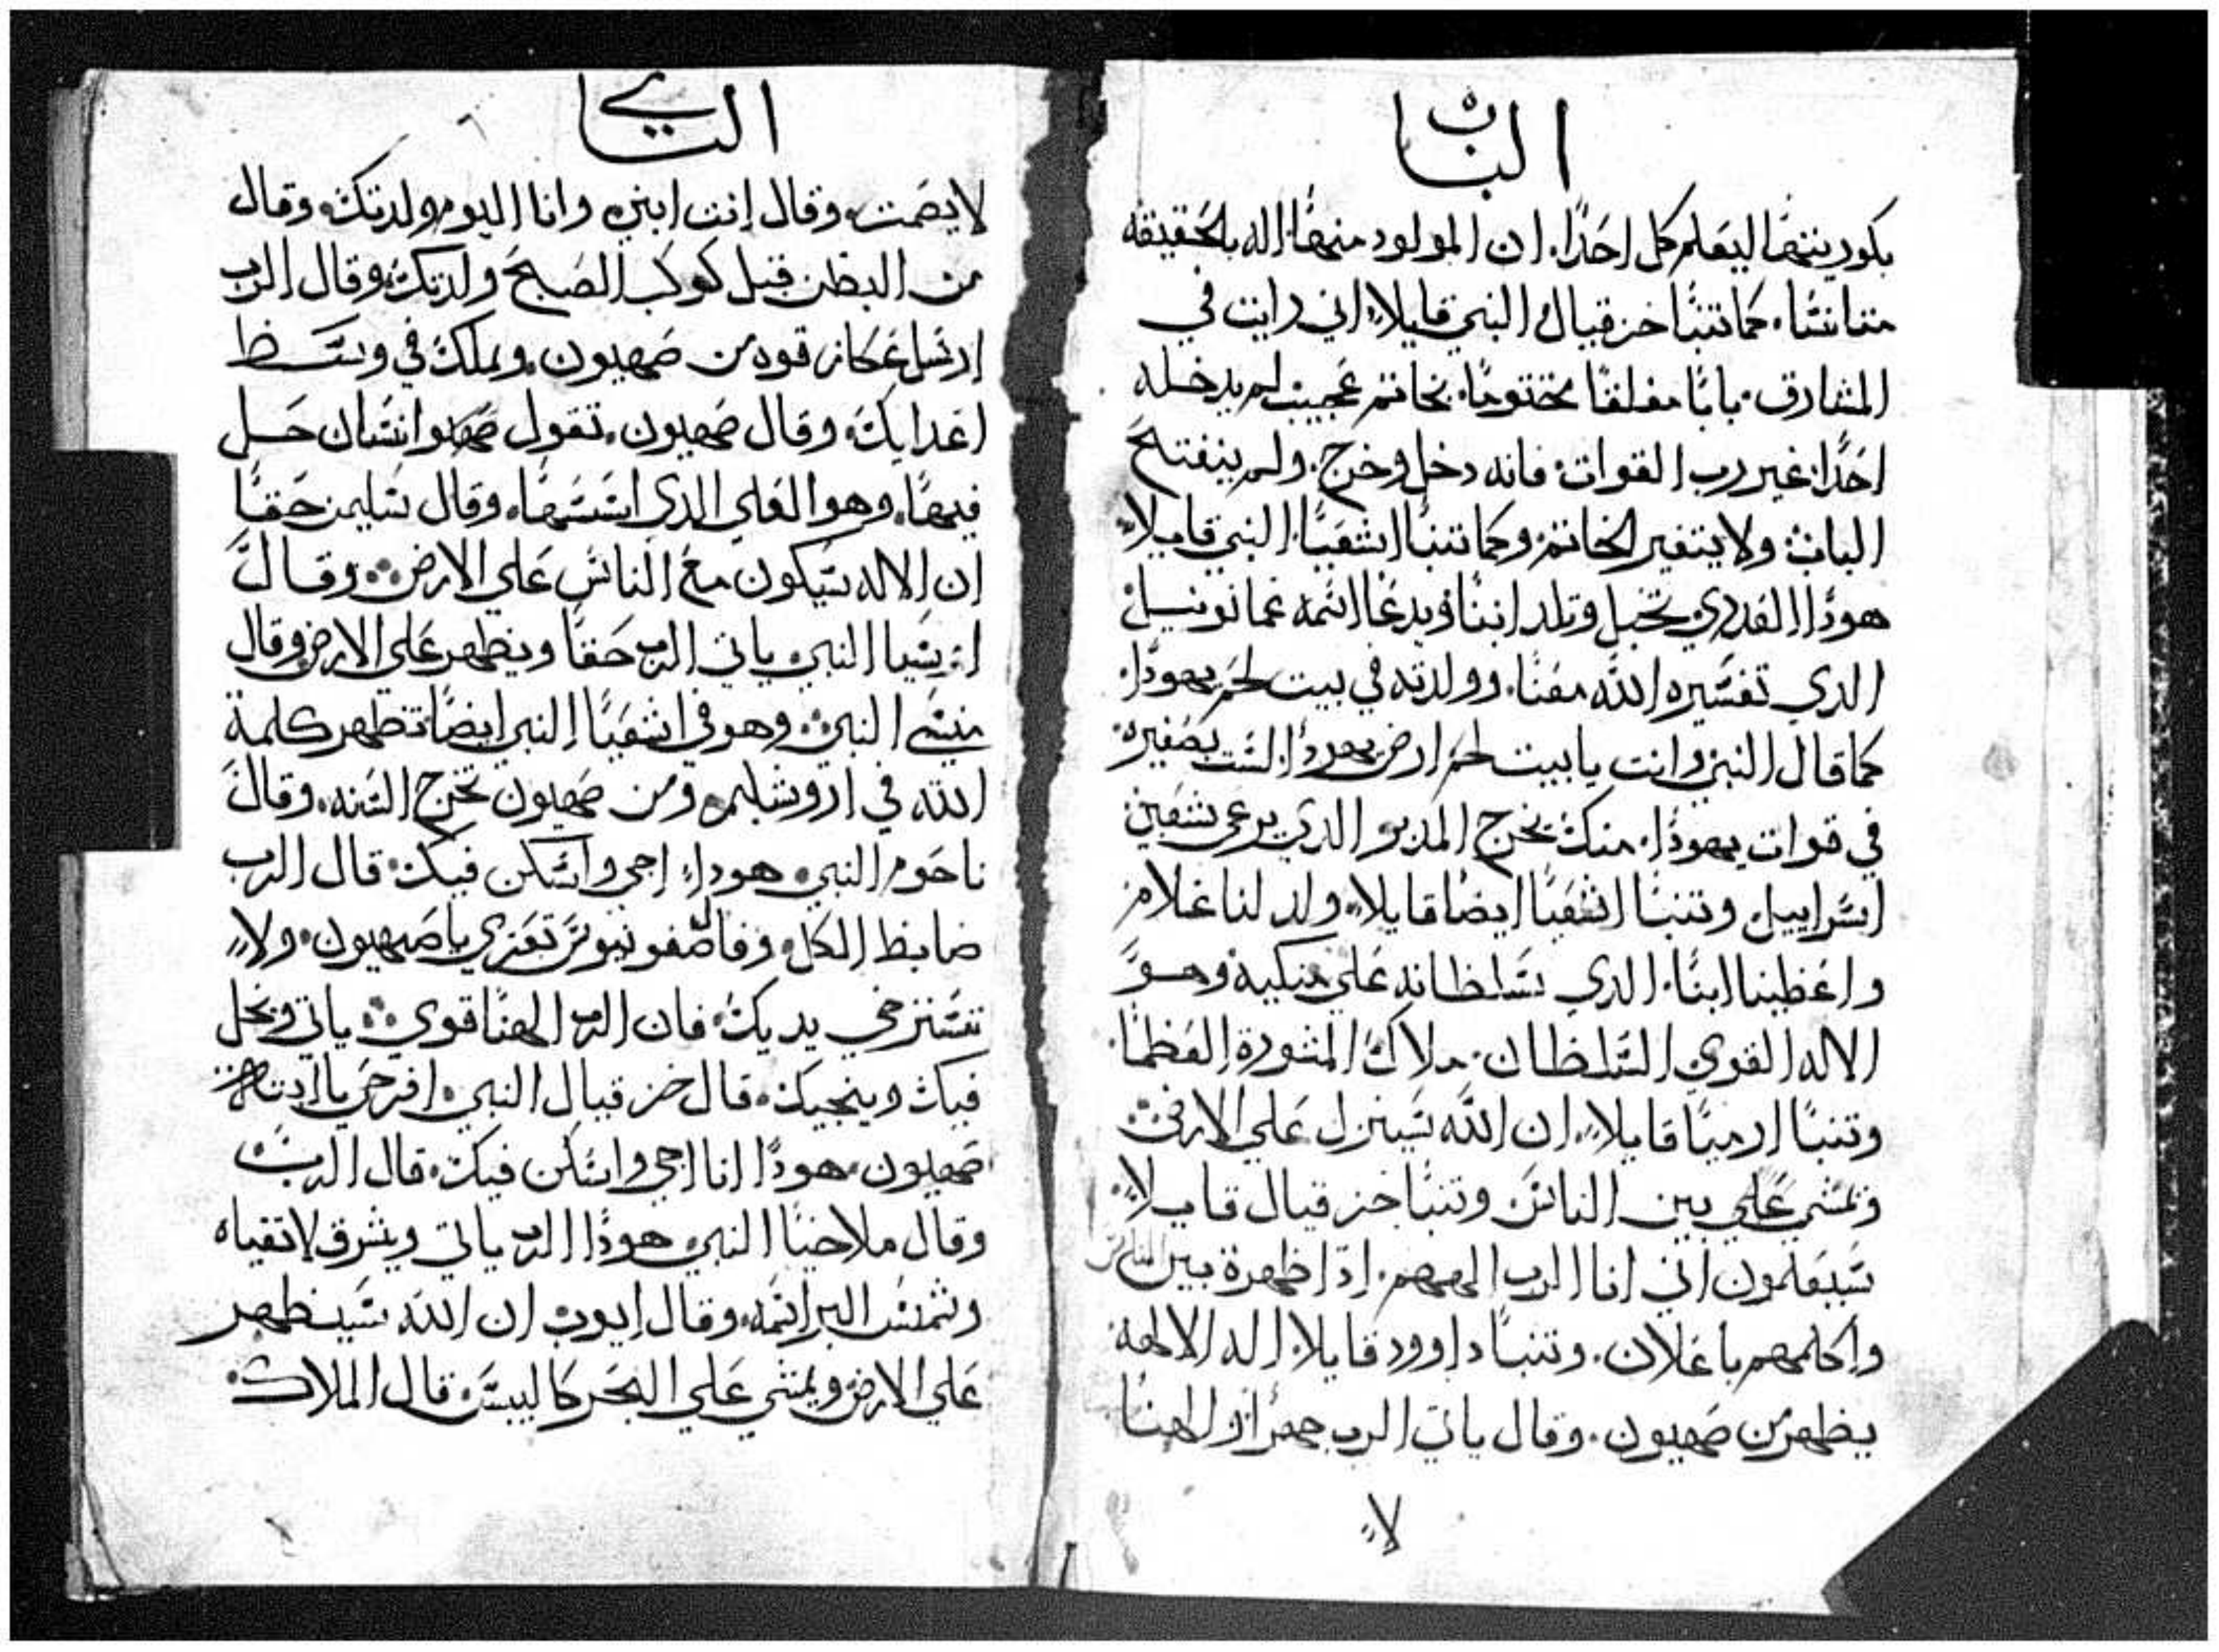 الباب
بكوريتها ليعلم كل احدًا. ان المولود منها اله بالحقيقه
متانسًا. كما تنبا حزقيال النبي قايلاً اني رايت في
المشارق بابًا مغلقًا مختومًا. بخاتم عجيب لم يدخله
احدًا غير رب القوات فانه دخل وخرج. ولم ينفتح
الباب ولا يتغير الخاتم وكما تنبا اشعيا النبي قايلاً
هودا العدري تحبل وتلد ابنًا ويدعا اسمه عمانوييل
الدي تفسيره الله معنا. وولدته في بيت لحم يهودا.
كما قال النبي وانت يا بيت لحم ارض يهودا لست بصغيره
في قوات يهودا. منك يخرج المدبر الدي يرعى شعبي
اسراييل وتنبا اشعيا ايضًا قايلاً ولد لنا غلام
واعطينا ابنًا. الدي سلطانه علي منكبيه وهو
الاله القوي السلطان. ملاك المشورة العظما.
وتنبا ارميا قايلاً. ان الله سينزل علي الارض
ويمشي علي بين الناس وتنبا حزقيال قايلاً
سيعلمون اني انا الرب الههم. ادا ظهرة بين الناس
واكلمهم باعلان. وتنبا داوود قايلا. اله الالهه
يظهر من صهيون. وقال ياتي الرب جهرًا والهنا
لا
التاني
لا يصمت. وقال انت ابني وانا اليوم ولدتك. وقال
من البطن قبل كوكب الصبح ولدتك. وقال الرب
ارسل عكاز قوه من صهيون. ويملك في وسط
اعدايك. وقال صهيون. تقول صهيوانسان حل
فيها. وهو العلي الدي اسسها. وقال سليمن حقًا
ان الاله سيكون مع الناس علي الارض. وقال
اريسيا النبي ياتي الرب حقًا ويظهر علي الارض وقال
ميسى النبي. وهو في اشعيا النبي ايضًا تظهر كلمة
الله في اروشليم ومن صهيون تخرج السنه. وقال
ناحوم النبي هودا اجي واسكن فيك قال الرب
ضابط الكل. وقال صفونيوس تعزي يا صهيون. ولا
تسترخي يديك. فان الرب الهنا قوي. ياتي ويحل
فيك وينجيك. قال حزقيال النبي افرحي يا ابنة
صهيون. هودا انا اجي واسكن فيك. قال الرب
وقال ملاخيا النبي هودا الرب ياتي ويشرق لاتقياه
وشمس البر اسمه. وقال ايوب ان الله سيظهر
علي الارض ويمشي علي البحر كاليبس. قال الملاك